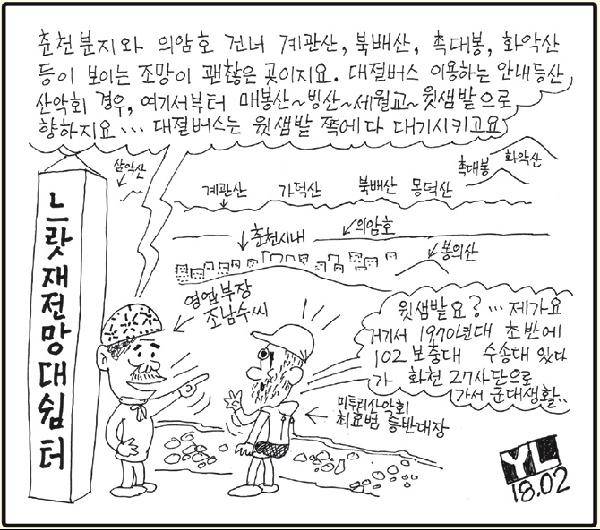 춘천분지와 의암호 건너 계관산, 북배산, 촉대봉, 화악산
등이 보이는 조망이 괜찮은 곳이지요. 대절버스 이용하는 안내등산,
산악회 경우, 여기서부터 매봉산~빙산~세월교~윗샘밭으로
향하지요... 대절버스는 윗샘밭 쪽에다 대기시키고요
삼악산
계관산 가덕산 북배산 몽덕산
촉대봉 화악산
춘천시내
의암호
봉의산
느랏재전망대쉼터
영업부장
조남수씨
윗샘밭요?... 제가요
거기서 1970년대 초반에
102 보충대 수송대 있다
가 화천 27사단으로
가서 군대생활..
미투리산악회
최요범 등반대장
YL
18.02